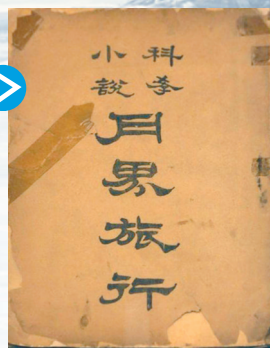 科斈
小說
月界旅行